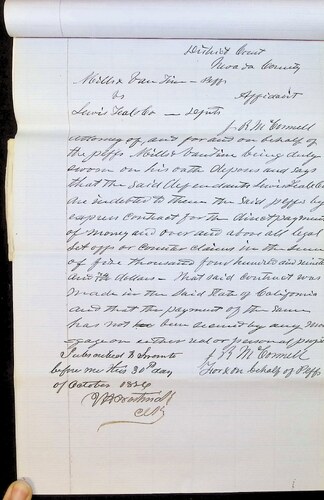 District Court
Nevada County
Mills & Van Tine — Peffs
vs Affidavit
Lewis Teal & Co — Defnts
J. R. McConnell
attorney of, and for and on behalf of
the peffs Mills & Van Tine being duly
sworn on his oath deposes and says
that the said defendants Lewis Teal & Co
are indebted to them the said peffs by
express contract for the direct payment
of money and over and above all legal
set offs or counter claims in the sum
of five thousand four hundred and ninety
dollars — that said contract was
made in the said State of California
and that the payment of the same
has not been secured by any mort
gage on either real or personal property
Subscribed & sworn to J. R. McConnell
before me this 30th day For & on behalf of Peffs
of October